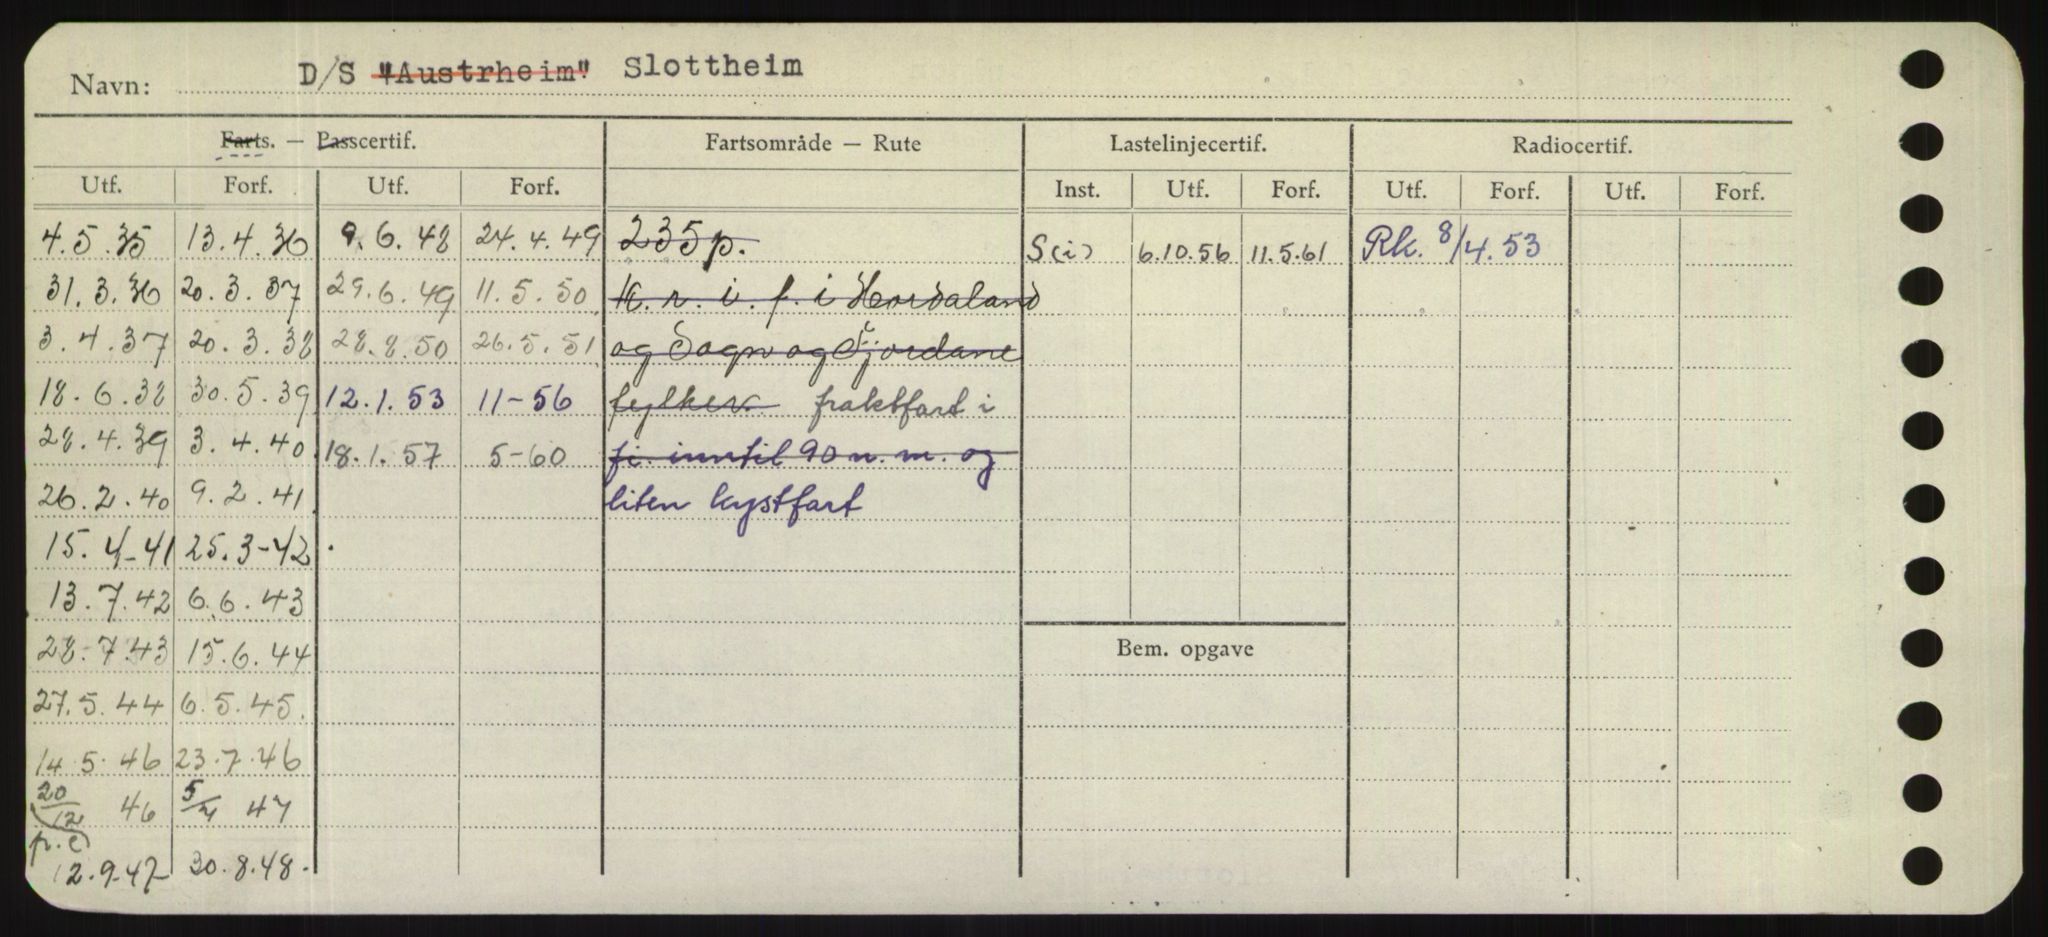 Navn: D/S "Austrheim" Slottheim
Farts. — Passcertif. Fartsområde — Rute Lastelinjecertif. Radiocertif.
Utf. Forf. Utf. Forf. Inst. Utf. Forf. Utf. Forf. Utf. Forf.
4.5.35 13.4.36 9.6.48 24.4.49 235 p. S(i) 6.10.56 11.5.61 Rk. 8/4.53
31.3.36 20.3.37 29.6.49 11.5.50 K. r. i. f. i Hordaland
3.4.37 20.3.38 28.8.50 26.5.51 og Sogn og Fjordane
18.6.38 30.5.39 12.1.53 11-56 fylker fraktfart i
28.4.39 3.4.40 18.1.57 5-60 fi. inntil 90 n. m. og
26.2.40 9.2.41 liten kystfart
15.4-41 25.3-42
13.7.42 6.6.43
28.7.43 15.6.44
Bem. opgave
27.5.44 6.5.45.
14.5.46 23.7.46
20/12 46 5/4 47
p.c
12.9.47 30.8.48.